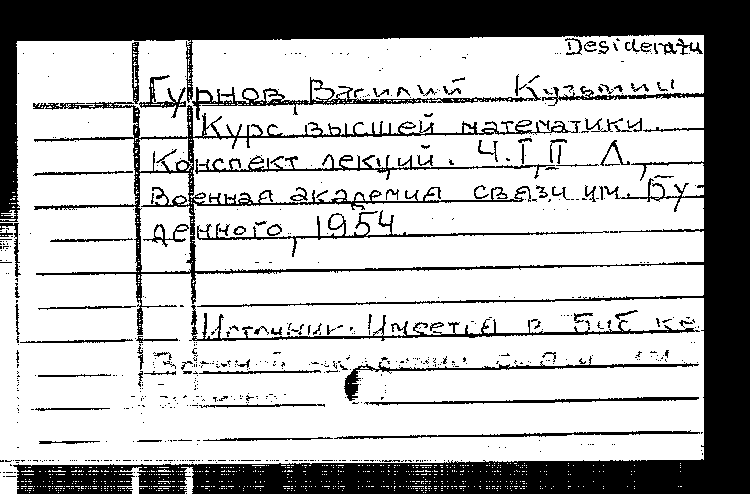 Desideratu
Гурнов, Василий Кузьмич
Курс высшей математики.
Конспект лекций. Ч. I, II Л.,
Военная академия связи им. Бу-
денного, 1954.
Источник. Имеется в биб-ке
Военной академии связи им.